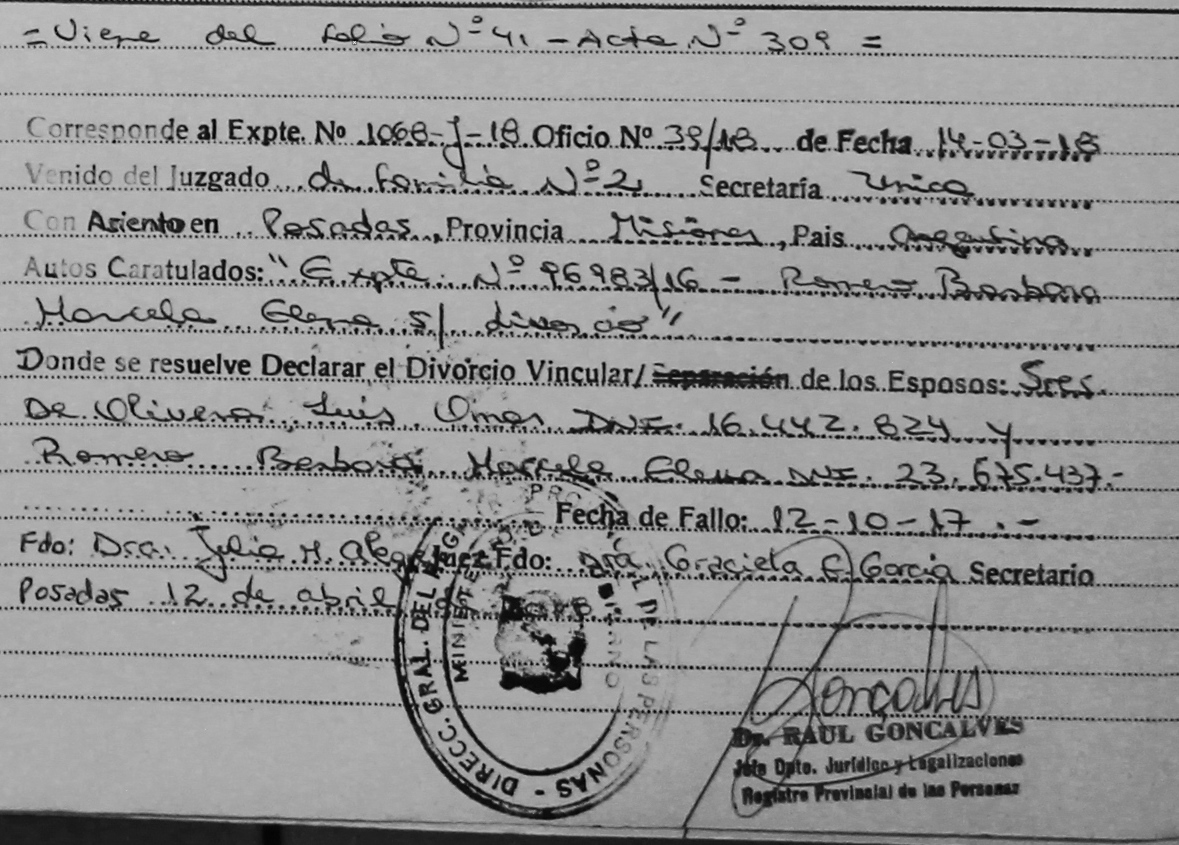 = Viene del folio Nº 41 - Acta Nº 309 =
Corresponde al Expte. Nº 1068-J-18 Oficio Nº 39/18 de Fecha 14-03-18
Venido del Juzgado de familia Nº 2 Secretaría Unica
Con Asiento en Posadas, Provincia Misiones, Pais Argentina
Autos Caratulados: "Expte. Nº 96983/16 - Romero Barbara
Marcela Elena s/ divorcio"
Donde se resuelve Declarar el Divorcio Vincular/ Separación de los Esposos: Sres.
De Olivera, Luis Omar DNI. 16.442.824 y
Romero Barbara Marcela Elena DNI. 23.675.437.-
Fecha de Fallo: 12-10-17.-
Fdo: Dra. Julia H. Juez Fdo: Dra. Graciela E. Garcia Secretario
Posadas 12 de abril
DIRECC. GRAL. DEL DE LAS PERSONAS -
Goncalves
Dr. RAUL GONCALVES
Jefe Dpto. Jurídico y Legalizaciones
Registro Provincial de las Personas